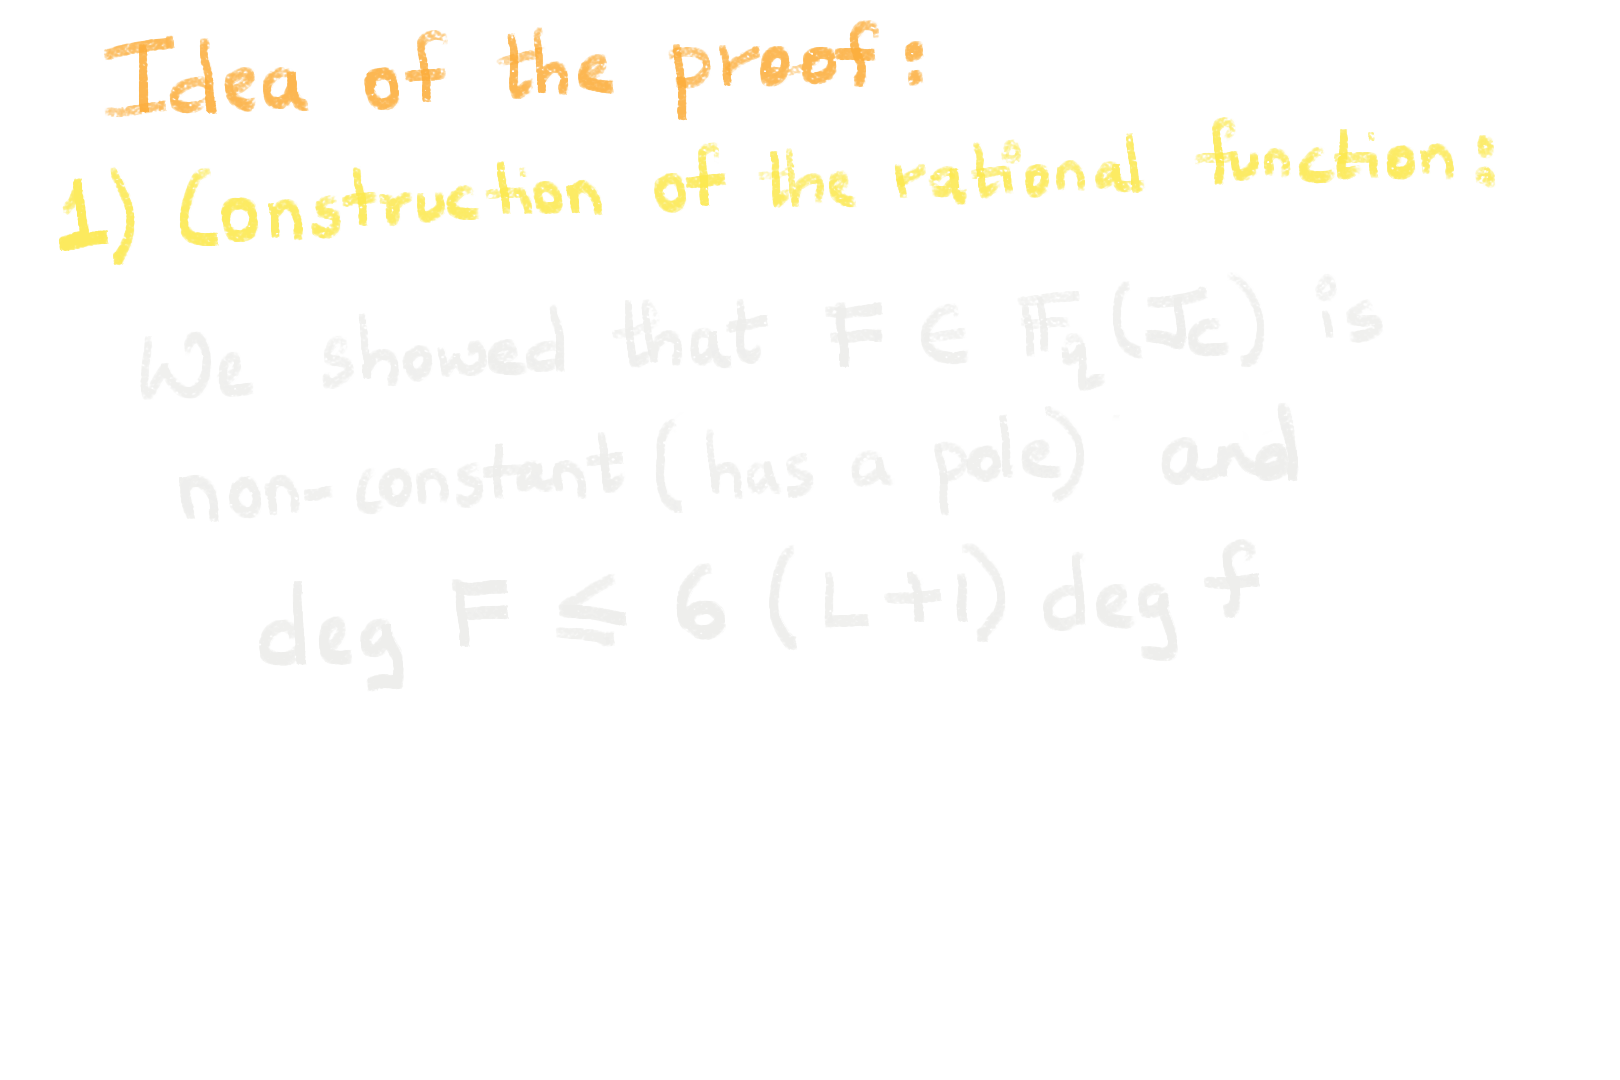 Idea of the proof:
1) Construction of the rational function:
We showed that F ∈ 𝔽_q(J_C) is
non-constant (has a pole) and
deg F ≤ 6 (L+1) deg f